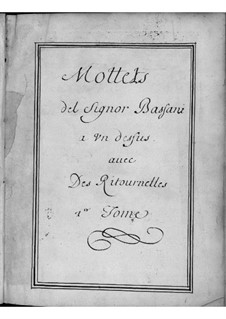 Mottets
del Signor Bassani
a vn dessus
auec
Des Ritournelles
1er Tome